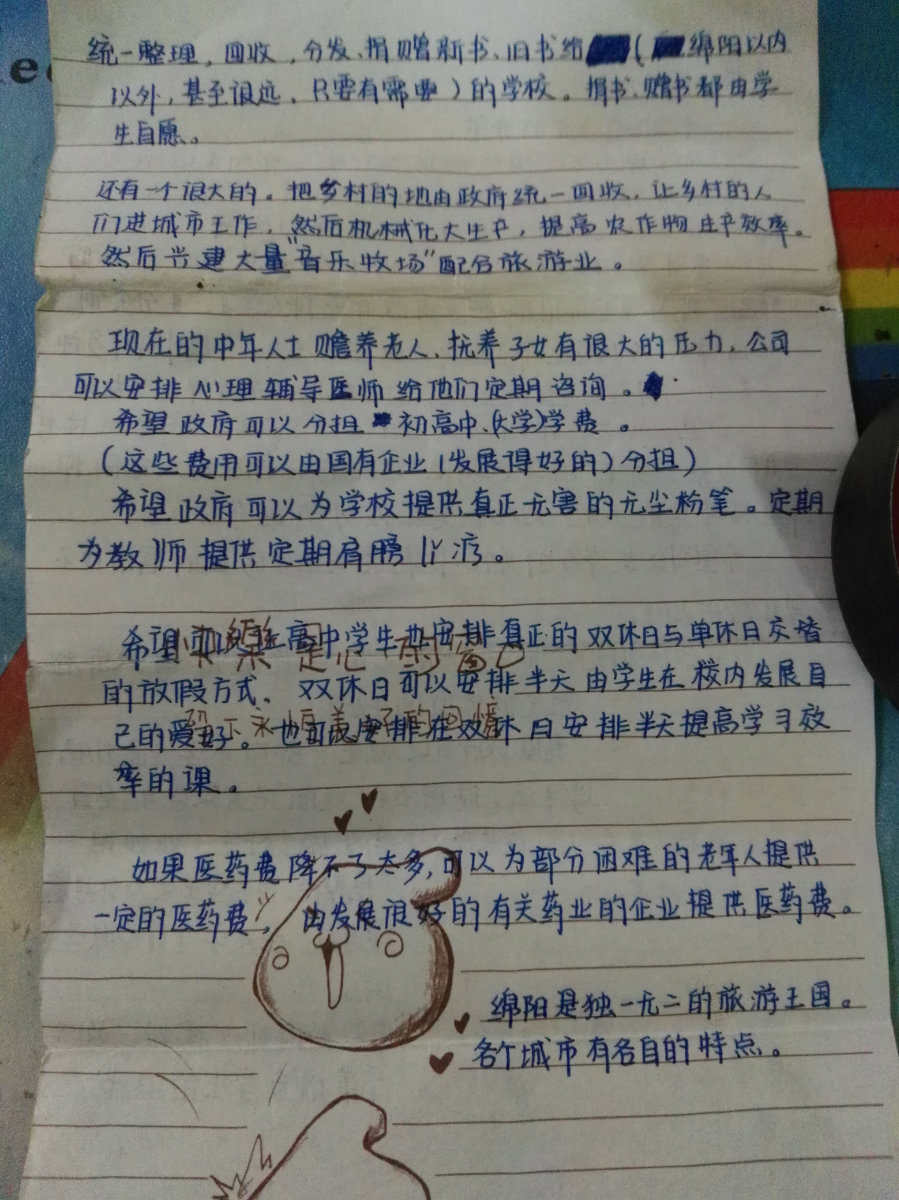 统一整理，回收，分发、捐赠新书、旧书给（绵阳以内
以外，甚至很远，只要有需要）的学校。捐书、赠书都由学
生自愿。
还有一个很大的。把乡村的地由政府统一回收，让乡村的人
们进城市工作，然后机械化大生产，提高农作物生产效率。
然后兴建大量“音乐牧场”配合旅游业。
现在的中年人士赡养老人、抚养子女有很大的压力，公司
可以安排心理辅导医师给他们定期咨询。
希望政府可以分担初高中、(大学)学费。
（这些费用可以由国有企业（发展得好的）分担）
希望政府可以为学校提供真正无害的无尘粉笔。定期
为教师提供定期肩膀治疗。
希望高中学生安排真正的双休日与单休日交替
的放假方式、双休日可以安排半天由学生在校内发展自
己的爱好。也可以安排在双休日安排半天提高学习效
率的课。
如果医药费降不了太多，可以为部分困难的老年人提供
一定的医药费，由发展很好的有关药业的企业提供医药费。
绵阳是独一无二的旅游王国。
各个城市有各自的特点。